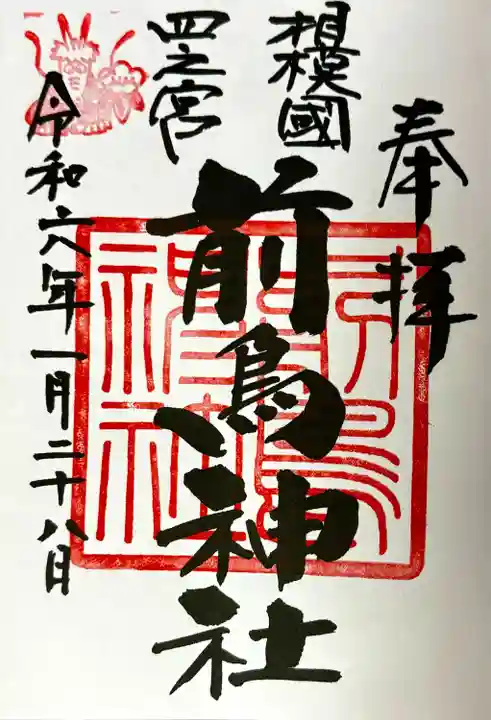 奉拝
相模國
四之宮
前鳥神社
令和六年一月二十八日